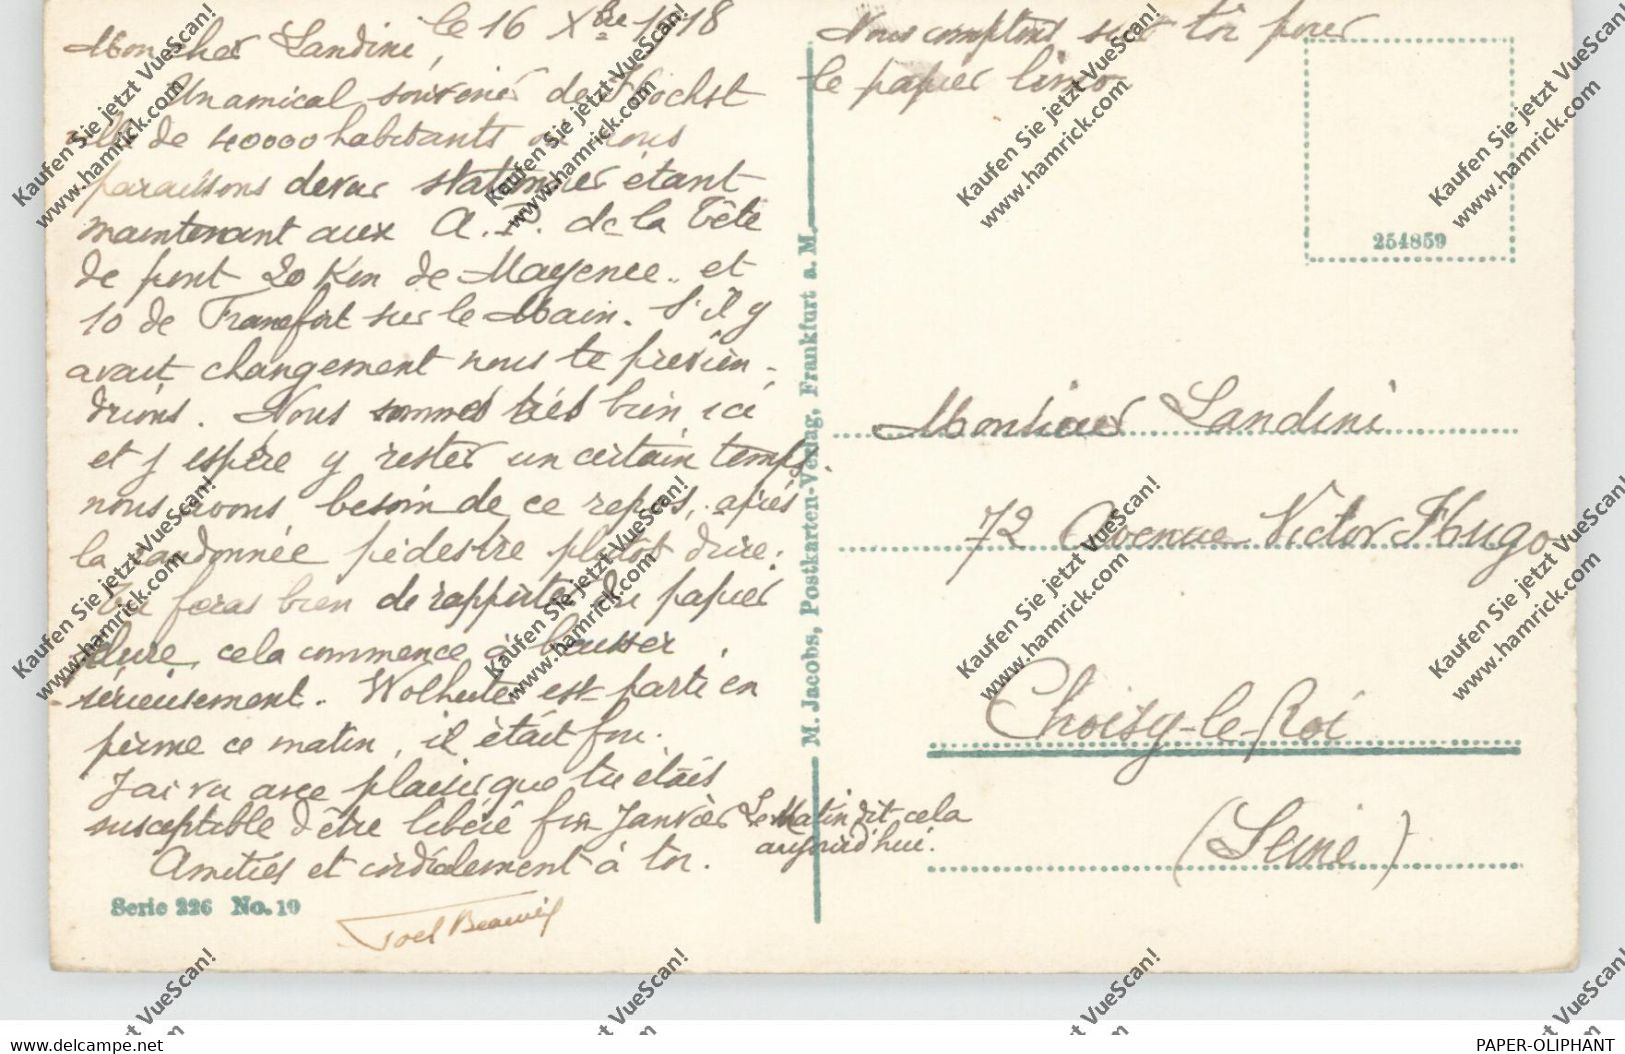 le 16 Xbre 1918
Mon cher Landini,
Un amical souvenir de Hochst
ville de 40000 habitants où nous
paraissons devoir stationner étant
maintenant aux A.P. de la Tête
de pont 20 Km de Mayence.. et
10 de Francfort sur le Main. S'il y
avait changement nous te previen-
drions. Nous sommes très bien ici
et j'espère y rester un certain temps.
nous avons besoin de ce repos, après
la randonnée pédestre plutôt dure.
Tu feras bien de rapporter du papier
dure, cela commence à baisser
sérieusement. Wolhuter est parti en
perme ce matin, il était fou.
J'ai vu avec plaisir que tu étais
susceptible d'être libéré fin Janvier Le Matin dit cela
aujourd'hui.
Amitiés et cordialement à toi.
Serie 226 No. 19
M. Jacobs, Postkarten-Verlag, Frankfurt a. M.
Nous comptons sur toi pour
le papier
254859
Monsieur Landini
72 Avenue Victor Hugo
Choisy-le-Roi
(Seine)
Kaufen Sie jetzt VueScan!
www.hamrick.com
delcampe.net
PAPER-OLIPHANT